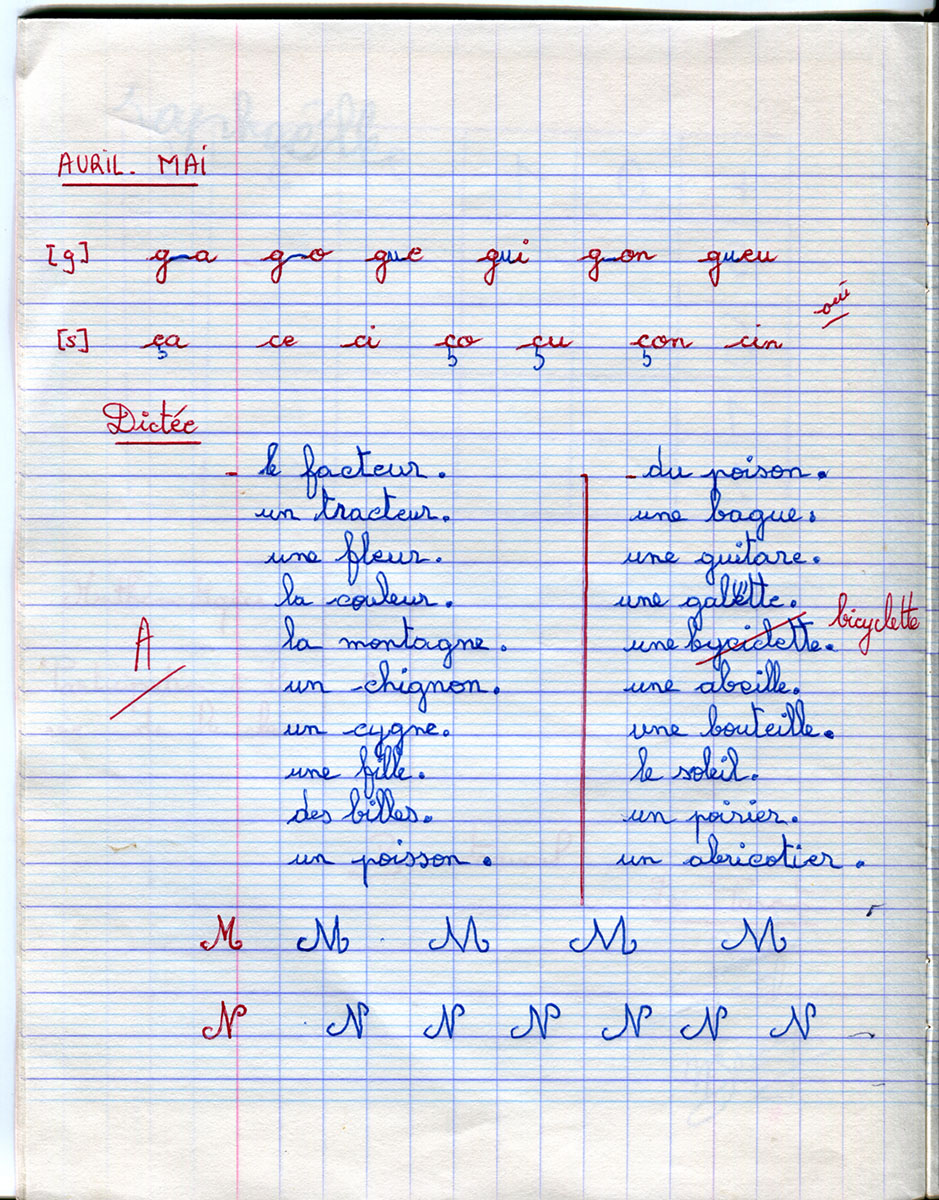 AVRIL. MAI
[g] g-a g-o gue gui g-on gueu
oui
[s] ça ce ci ço çu çon cin
Dictée
- le facteur.
un tracteur.
une fleur.
la couleur.
la montagne.
un chignon.
un cygne.
une fille.
des billes.
un poisson.
A
- du poison.
une bague.
une guitare.
une galette.
une byciclette. bicyclette
une abeille.
une bouteille.
le soleil.
un poirier.
un abricotier.
M M M M M
N N N N N N N